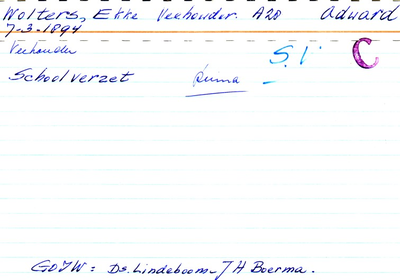 Wolters, Ekke Veehouder. A20 Adward
7-3-1894
Veehouder S.V. C
Schoolverzet
GOIW: Ds. Lindeboom - J H Boerma.